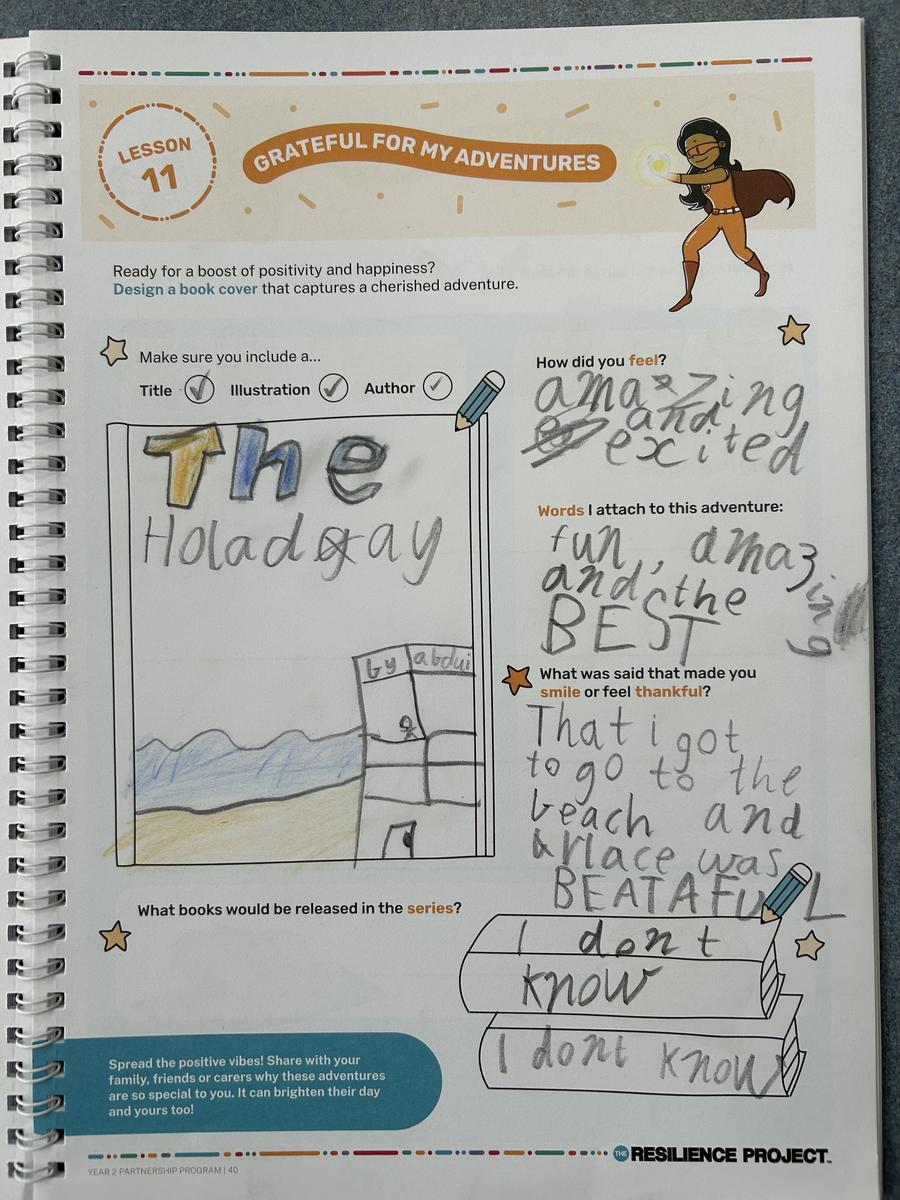 LESSON
11
GRATEFUL FOR MY ADVENTURES
Ready for a boost of positivity and happiness?
Design a book cover that captures a cherished adventure.
Make sure you include a...
Title Illustration Author
The
Holad ay
by abdul
How did you feel?
amazzing
and
excited
Words I attach to this adventure:
fun, amazing
and the
BEST
What was said that made you
smile or feel thankful?
That i got
to go to the
beach and
Place was
BEATAFUL
What books would be released in the series?
I dont
know
I dont know
Spread the positive vibes! Share with your
family, friends or carers why these adventures
are so special to you. It can brighten their day
and yours too!
YEAR 2 PARTNERSHIP PROGRAM | 40
THE RESILIENCE PROJECT.